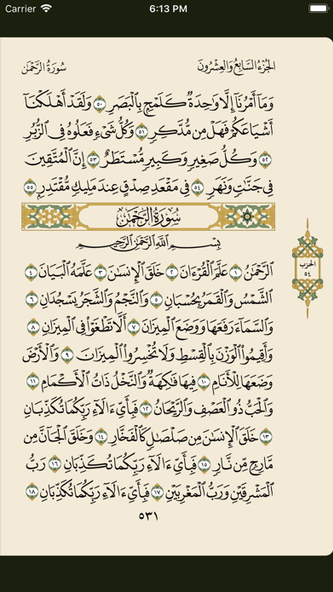 Carrier 6:13 PM
سُورَةُ الرَّحْمَٰن الجُزْءُ السَّابِعُ وَالعِشْرُونَ
وَمَآ أَمْرُنَآ إِلَّا وَٰحِدَةٌ كَلَمْحٍۭ بِٱلْبَصَرِ ٥٠ وَلَقَدْ أَهْلَكْنَآ
أَشْيَاعَكُمْ فَهَلْ مِن مُّدَّكِرٍ ٥١ وَكُلُّ شَىْءٍ فَعَلُوهُ فِى ٱلزُّبُرِ
٥٢ وَكُلُّ صَغِيرٍ وَكَبِيرٍ مُّسْتَطَرٌ ٥٣ إِنَّ ٱلْمُتَّقِينَ
فِى جَنَّٰتٍ وَنَهَرٍ ٥٤ فِى مَقْعَدِ صِدْقٍ عِندَ مَلِيكٍ مُّقْتَدِرٍۭ ٥٥
سُورَةُ الرَّحْمَٰن
بِسْمِ ٱللَّهِ ٱلرَّحْمَٰنِ ٱلرَّحِيمِ
ٱلرَّحْمَٰنُ ١ عَلَّمَ ٱلْقُرْءَانَ ٢ خَلَقَ ٱلْإِنسَٰنَ ٣ عَلَّمَهُ ٱلْبَيَانَ ٤
ٱلشَّمْسُ وَٱلْقَمَرُ بِحُسْبَانٍ ٥ وَٱلنَّجْمُ وَٱلشَّجَرُ يَسْجُدَانِ ٦
وَٱلسَّمَآءَ رَفَعَهَا وَوَضَعَ ٱلْمِيزَانَ ٧ أَلَّا تَطْغَوْا۟ فِى ٱلْمِيزَانِ ٨
وَأَقِيمُوا۟ ٱلْوَزْنَ بِٱلْقِسْطِ وَلَا تُخْسِرُوا۟ ٱلْمِيزَانَ ٩ وَٱلْأَرْضَ
وَضَعَهَا لِلْأَنَامِ ١٠ فِيهَا فَٰكِهَةٌ وَٱلنَّخْلُ ذَاتُ ٱلْأَكْمَامِ ١١
وَٱلْحَبُّ ذُو ٱلْعَصْفِ وَٱلرَّيْحَانُ ١٢ فَبِأَىِّ ءَالَآءِ رَبِّكُمَا تُكَذِّبَانِ
١٣ خَلَقَ ٱلْإِنسَٰنَ مِن صَلْصَٰلٍ كَٱلْفَخَّارِ ١٤ وَخَلَقَ ٱلْجَآنَّ مِن
مَّارِجٍ مِّن نَّارٍ ١٥ فَبِأَىِّ ءَالَآءِ رَبِّكُمَا تُكَذِّبَانِ ١٦ رَبُّ
ٱلْمَشْرِقَيْنِ وَرَبُّ ٱلْمَغْرِبَيْنِ ١٧ فَبِأَىِّ ءَالَآءِ رَبِّكُمَا تُكَذِّبَانِ ١٨
الحزب
٥٤
٥٣١